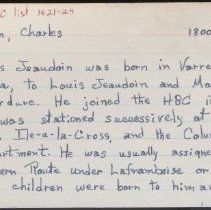 C list 1821-24
n, Charles 1800
s Jeaudoin was born in Varre
a, to Louis Jeaudoin and Ma
rdure. He joined the HBC i
was stationed successively at
, Ile-a-la-Cross, and the Colu
artment. He was usually assigne
ern Route under Laframboise or
children were born to him a